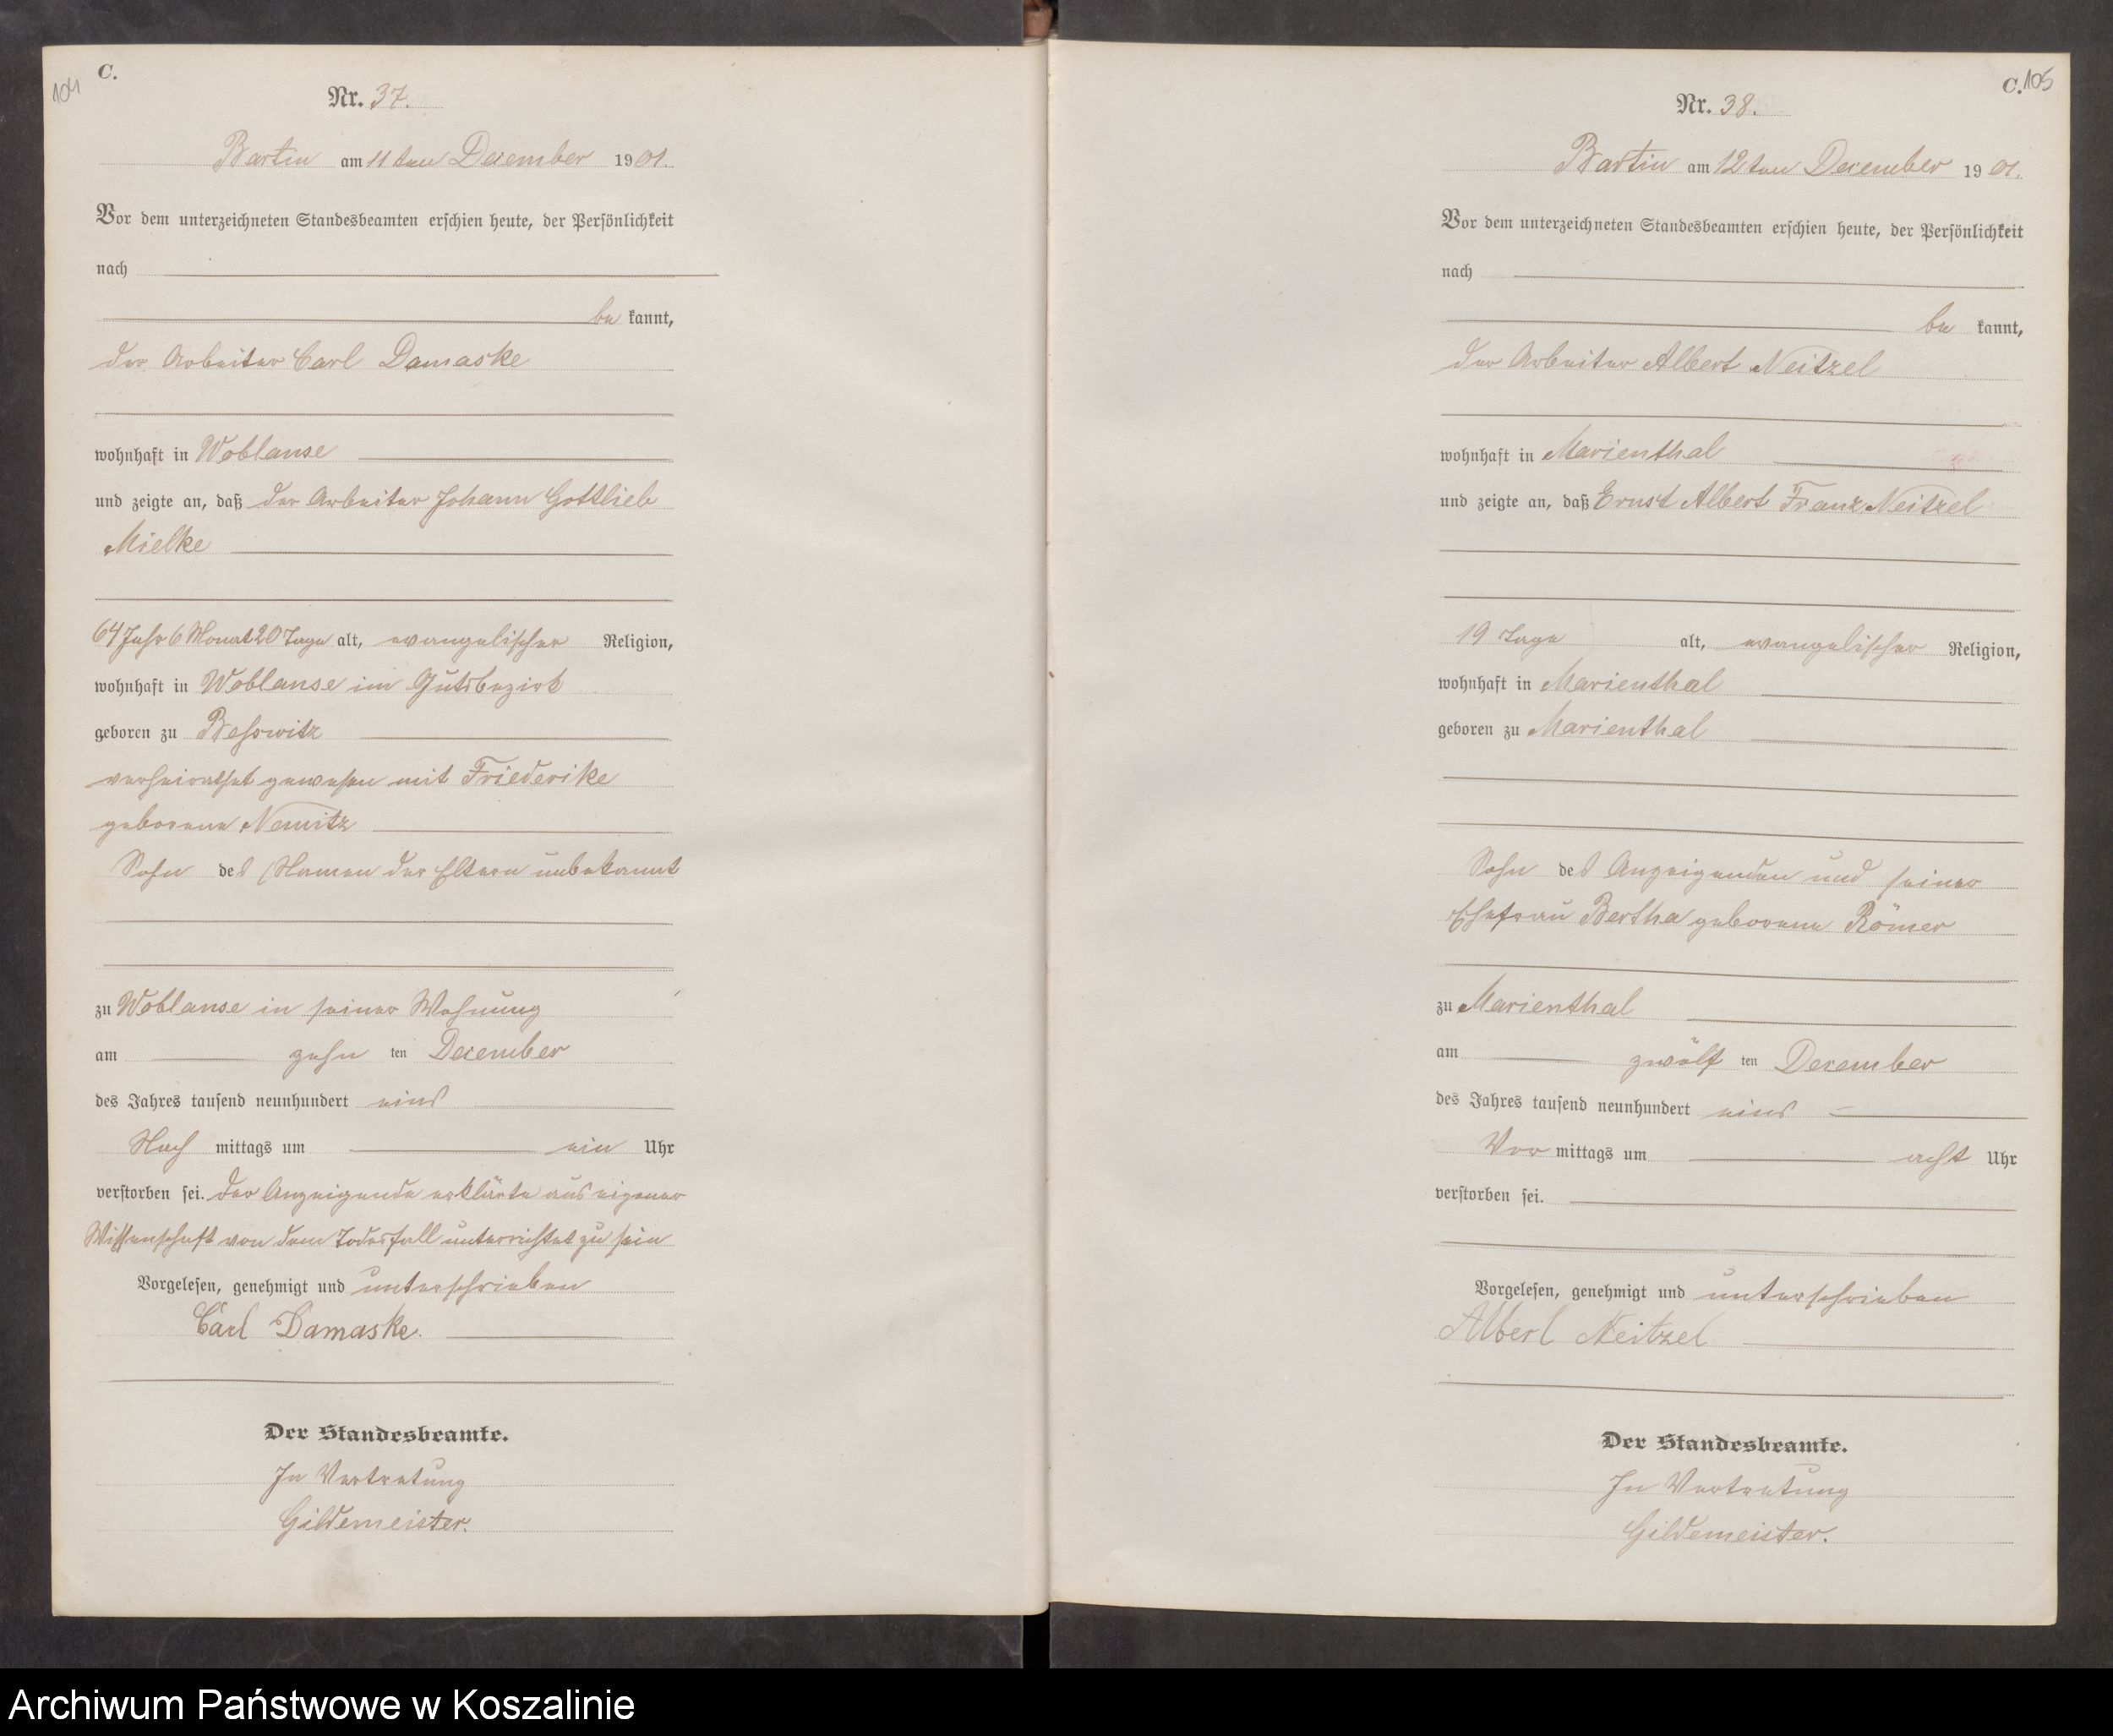 104
C.
Nr. 37.
Bartin am 11 ten December 1901.
Vor dem unterzeichneten Standesbeamten erschien heute, der Persönlichkeit
nach
be kannt,
der Arbeiter Carl Damaske
wohnhaft in Woblanse
und zeigte an, daß der Arbeiter Johann Gottlieb
Mielke
64 Jahr 6 Monat 20 Tage alt, evangelischer Religion,
wohnhaft in Woblanse im Gutsbezirk
geboren zu Beßwitz
verheirathet gewesen mit Friederike
geborene Nemitz
Sohn des (Namen der Eltern unbekannt
zu Woblanse in seiner Wohnung
am zehn ten December
des Jahres tausend neunhundert eins
Nach mittags um ein Uhr
verstorben sei. Der Anzeigende erklärte aus eigener
Wissenschaft von dem Todesfall unterrichtet zu sein
Vorgelesen, genehmigt und unterschrieben
Carl Damaske.
Der Standesbeamte.
In Vertretung
Gildemeister.
C. 105
Nr. 38.
Bartin am 12 ten December 1901.
Vor dem unterzeichneten Standesbeamten erschien heute, der Persönlichkeit
nach
be kannt,
der Arbeiter Albert Neitzel
wohnhaft in Marienthal
und zeigte an, daß Ernst Albert Franz Neitzel
19 Tage alt, evangelischer Religion,
wohnhaft in Marienthal
geboren zu Marienthal
Sohn des Anzeigenden und seiner
Ehefrau Bertha geborene Römer
zu Marienthal
am zwölf ten December
des Jahres tausend neunhundert eins
Vor mittags um acht Uhr
verstorben sei.
Vorgelesen, genehmigt und unterschrieben
Albert Neitzel
Der Standesbeamte.
In Vertretung
Gildemeister.
Archiwum Państwowe w Koszalinie